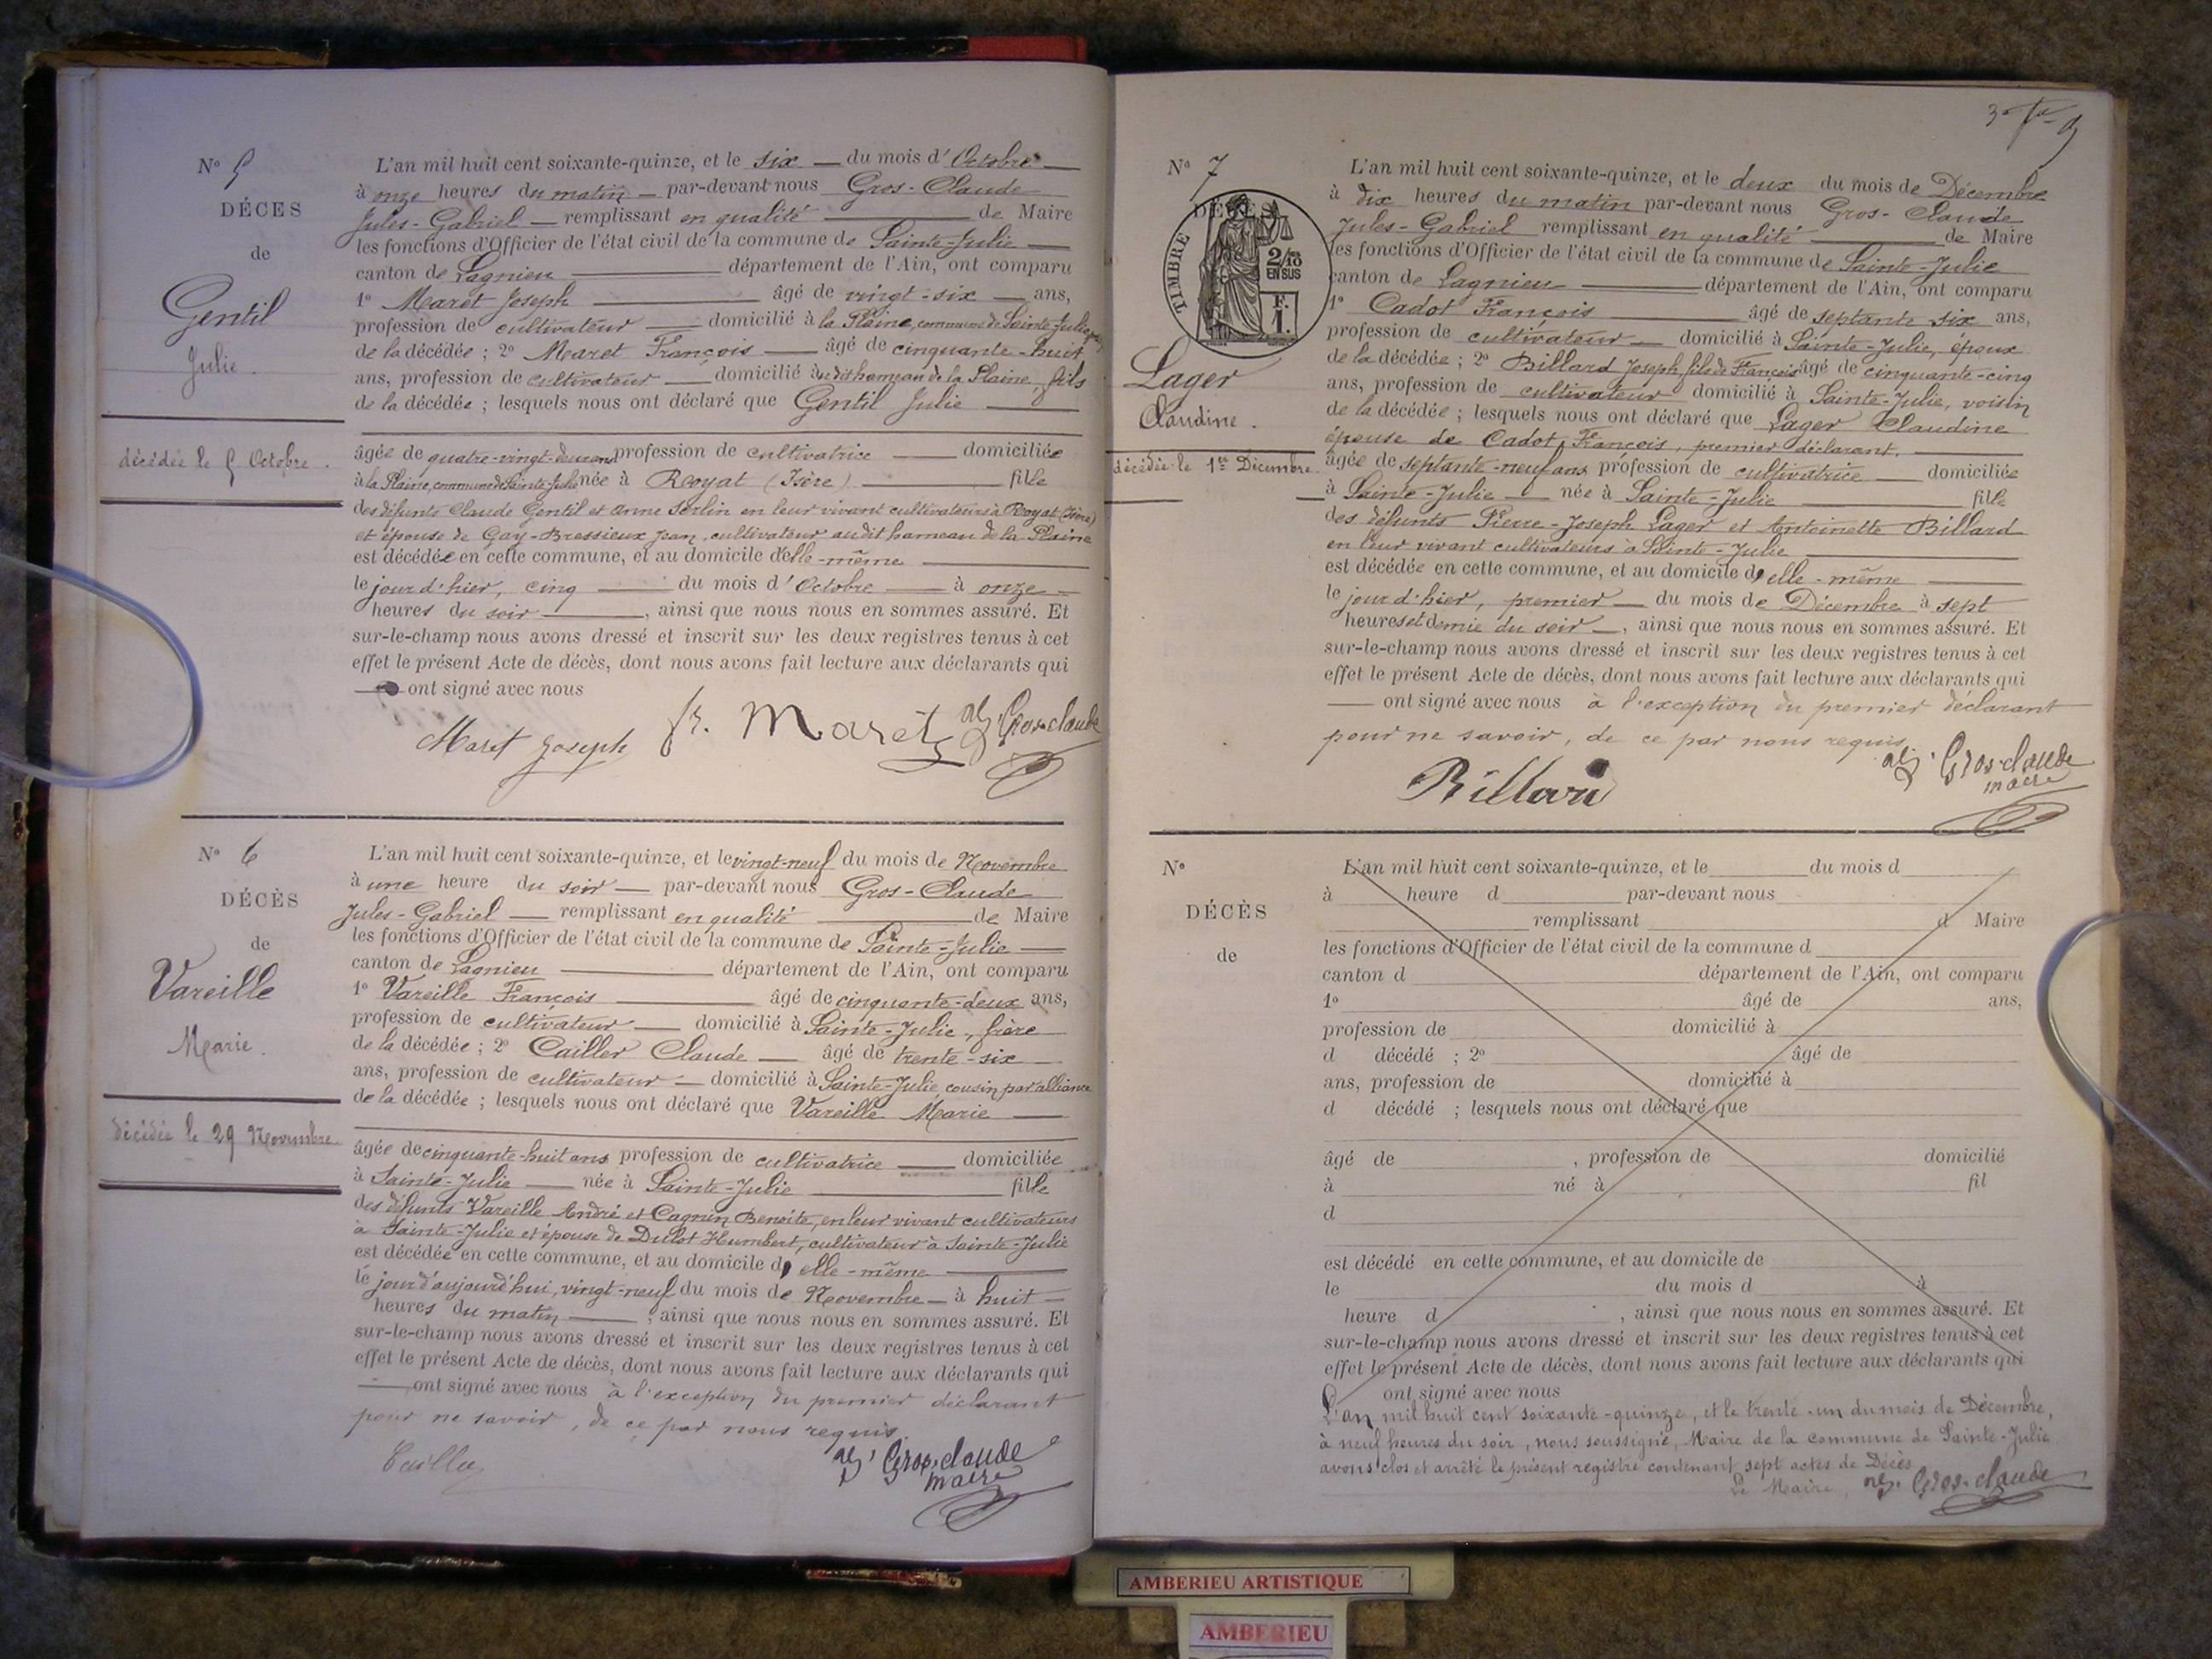 N° 5
DÉCÈS
de
Gentil
Julie.
décédée le 5 Octobre.
L'an mil huit cent soixante-quinze, et le six du mois d'Octobre
à onze heures du matin par-devant nous Gros-Claude
Jules-Gabriel remplissant en qualité de Maire
les fonctions d'Officier de l'état civil de la commune de Sainte-Julie
canton de Lagnieu département de l'Ain, ont comparu
1° Maret Joseph âgé de vingt-six ans,
profession de cultivateur domicilié à la Plaine, commune de Sainte-Julie,
de la décédée ; 2° Maret François âgé de cinquante-huit
ans, profession de cultivateur domicilié audit hameau de la Plaine, fils
de la décédée ; lesquels nous ont déclaré que Gentil Julie
âgée de quatre-vingt- profession de cultivatrice domiciliée
à la Plaine, commune de Sainte-Julie née à Royat (Isère) fille
des défunts Claude Gentil et Anne Serlin en leur vivant cultivateurs à Royat (Isère)
et épouse de Gay-Bressieux Jean, cultivateur audit hameau de la Plaine
est décédée en cette commune, et au domicile d'elle-même
le jour d'hier, cinq du mois d'Octobre à onze
heures du soir, ainsi que nous nous en sommes assuré. Et
sur-le-champ nous avons dressé et inscrit sur les deux registres tenus à cet
effet le présent Acte de décès, dont nous avons fait lecture aux déclarants qui
ont signé avec nous
Maret Joseph fr. Maret Gros-claude
N° 6
DÉCÈS
de
Vareille
Marie.
décédée le 29 Novembre.
L'an mil huit cent soixante-quinze, et le vingt-neuf du mois de Novembre
à une heure du soir par-devant nous Gros-Claude
Jules-Gabriel remplissant en qualité de Maire
les fonctions d'Officier de l'état civil de la commune de Sainte-Julie
canton de Lagnieu département de l'Ain, ont comparu
1° Vareille François âgé de cinquante-deux ans,
profession de cultivateur domicilié à Sainte-Julie, frère
de la décédée ; 2° Cailler Claude âgé de trente-six
ans, profession de cultivateur domicilié à Sainte-Julie, cousin par alliance
de la décédée ; lesquels nous ont déclaré que Vareille Marie
âgée de cinquante-huit ans profession de cultivatrice domiciliée
à Sainte-Julie née à Sainte-Julie fille
des défunts Vareille André et Cagnin Benoîte, en leur vivant cultivateurs
à Sainte-Julie et épouse de Dulot Humbert, cultivateur à Sainte-Julie
est décédée en cette commune, et au domicile d'elle-même
le jour d'aujourd'hui, vingt-neuf du mois de Novembre à huit
heures du matin, ainsi que nous nous en sommes assuré. Et
sur-le-champ nous avons dressé et inscrit sur les deux registres tenus à cet
effet le présent Acte de décès, dont nous avons fait lecture aux déclarants qui
ont signé avec nous à l'exception du premier déclarant
pour ne savoir, de ce par nous requis.
Gros-claude
maire
N° 7
DÉCÈS
TIMBRE
2/10
EN SUS
F.
1.
Lager
Claudine.
décédée le 1er Décembre.
L'an mil huit cent soixante-quinze, et le deux du mois de Décembre
à dix heures du matin par-devant nous Gros-Claude
Jules-Gabriel remplissant en qualité de Maire
les fonctions d'Officier de l'état civil de la commune de Sainte-Julie
canton de Lagnieu département de l'Ain, ont comparu
1° Cadot François âgé de septante six ans,
profession de cultivateur domicilié à Sainte-Julie, époux
de la décédée ; 2° Billard Joseph, fils de François âgé de cinquante-cinq
ans, profession de cultivateur domicilié à Sainte-Julie, voisin
de la décédée ; lesquels nous ont déclaré que Lager Claudine
épouse de Cadot François, premier déclarant.
âgée de septante-neuf ans profession de cultivatrice domiciliée
à Sainte-Julie née à Sainte-Julie fille
des défunts Pierre-Joseph Lager et Antoinette Billard
en leur vivant cultivateurs à Sainte-Julie
est décédée en cette commune, et au domicile d'elle-même
le jour d'hier, premier du mois de Décembre à sept
heures et demie du soir, ainsi que nous nous en sommes assuré. Et
sur-le-champ nous avons dressé et inscrit sur les deux registres tenus à cet
effet le présent Acte de décès, dont nous avons fait lecture aux déclarants qui
ont signé avec nous à l'exception du premier déclarant
pour ne savoir, de ce par nous requis.
Gros-claude
maire
Billard
N°
DÉCÈS
de
L'an mil huit cent soixante-quinze, et le du mois d
à heure d par-devant nous
remplissant d Maire
les fonctions d'Officier de l'état civil de la commune d
canton d département de l'Ain, ont comparu
1° âgé de ans,
profession de domicilié à
d décédé ; 2° âgé de
ans, profession de domicilié à
d décédé ; lesquels nous ont déclaré que
âgé de , profession de domicilié
à né à fil
d
est décédé en cette commune, et au domicile de
le du mois d à
heure d , ainsi que nous nous en sommes assuré. Et
sur-le-champ nous avons dressé et inscrit sur les deux registres tenus à cet
effet le présent Acte de décès, dont nous avons fait lecture aux déclarants qui
ont signé avec nous
L'an mil huit cent soixante-quinze, et le trente-un du mois de Décembre,
à neuf heures du soir, nous soussigné, Maire de la commune de Sainte-Julie
avons clos et arrêté le présent registre contenant sept actes de Décès
Le Maire, Gros-claude
AMBERIEU ARTISTIQUE
AMBERIEU